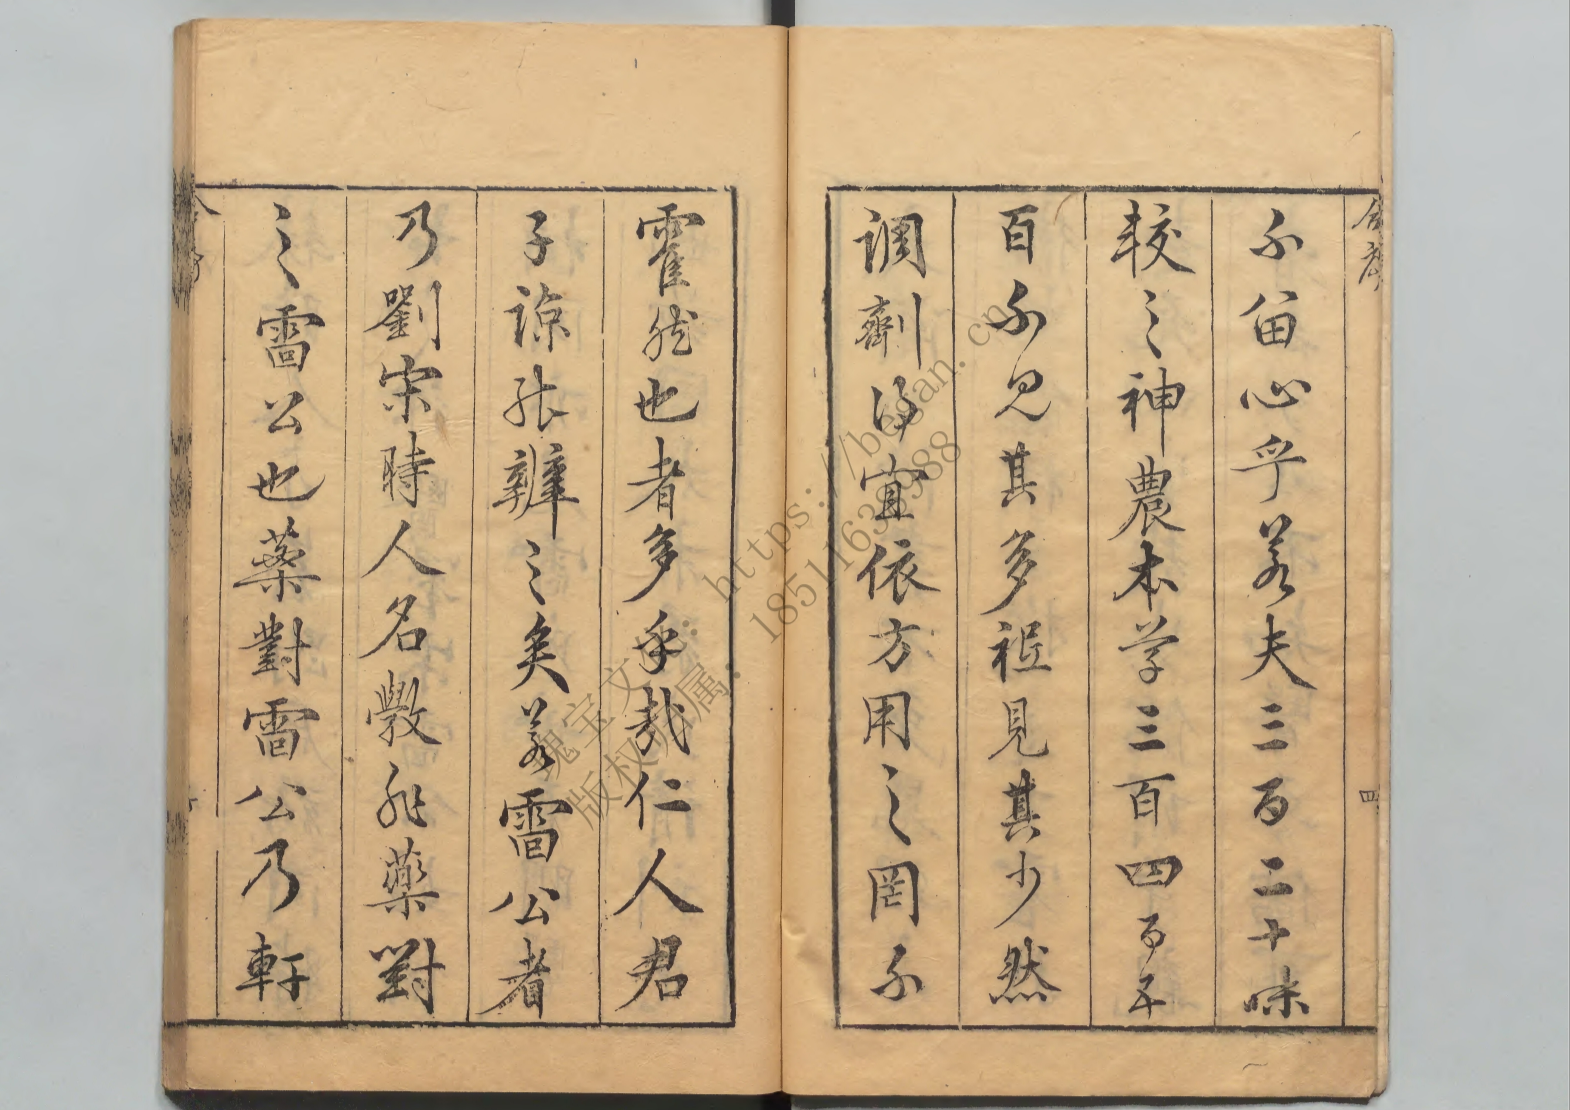 不留心乎若夫三百二十味
較之神農本草三百四百年
百不見其多祗見其少然
調劑得宜依方用之罔不
霍然也者多乎哉仁人君
子諒能辨之矣若雷公者
乃劉宋時人名斆非藥對
之雷公也藥對雷公乃軒
四
https://began.cn
18511633988